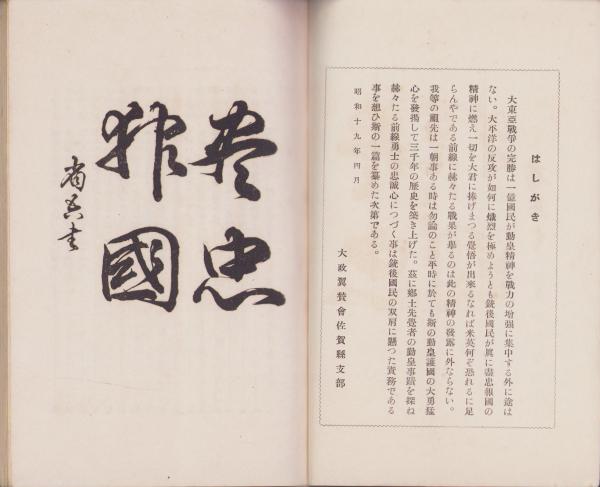 はしがき
大東亞戰爭の完勝は一億國民が勤皇精神を戰力の增强に集中する外に途は
ない。太平洋の反攻が如何に熾烈を極めようとも銃後國民が眞に盡忠報國の
精神に燃え一切を大君に捧げまつる覺悟が出來るなれば米英何ぞ恐れるに足
らんやである前線に赫々たる戰果が擧るのは此の精神の發露に外ならない。
我等の祖先は一朝事ある時は勿論のこと平時に於ても斯の勤皇護國の大勇猛
心を發揚して三千年の歷史を築き上げた。茲に鄕土先覺者の勤皇事蹟を探ね
赫々たる前線勇士の忠誠心につづく事は銃後國民の双肩に懸つた責務である
事を想ひ斯の一篇を纂めた次第である。
昭和十九年四月
大政翼贊會佐賀縣支部
盡忠
報國
書